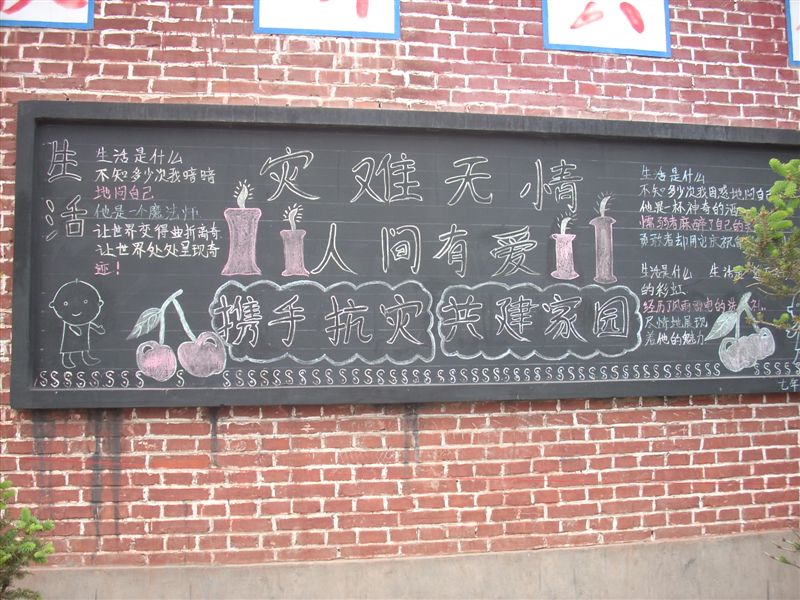 生活
生活是什么
不知多少次我暗暗
地问自己
他是一个魔法师
让世界变得曲折离奇
让世界处处呈现奇
迹!
灾难无情
人间有爱
携手抗灾
共建家园
生活是什么
不知多少次我困惑地问自己
他是一杯神奇的酒
懦弱者麻醉了自己的
勇敢者却用它庆祝
生活是什么 生活是
的彩虹
经历了风雨雷电的洗礼
尽情地展现
着他的魅力
SSSSSSSSSSSSSSSSSSSSSSSSSSSSSSSSSSSSSSSSSSSSSSSS
七年